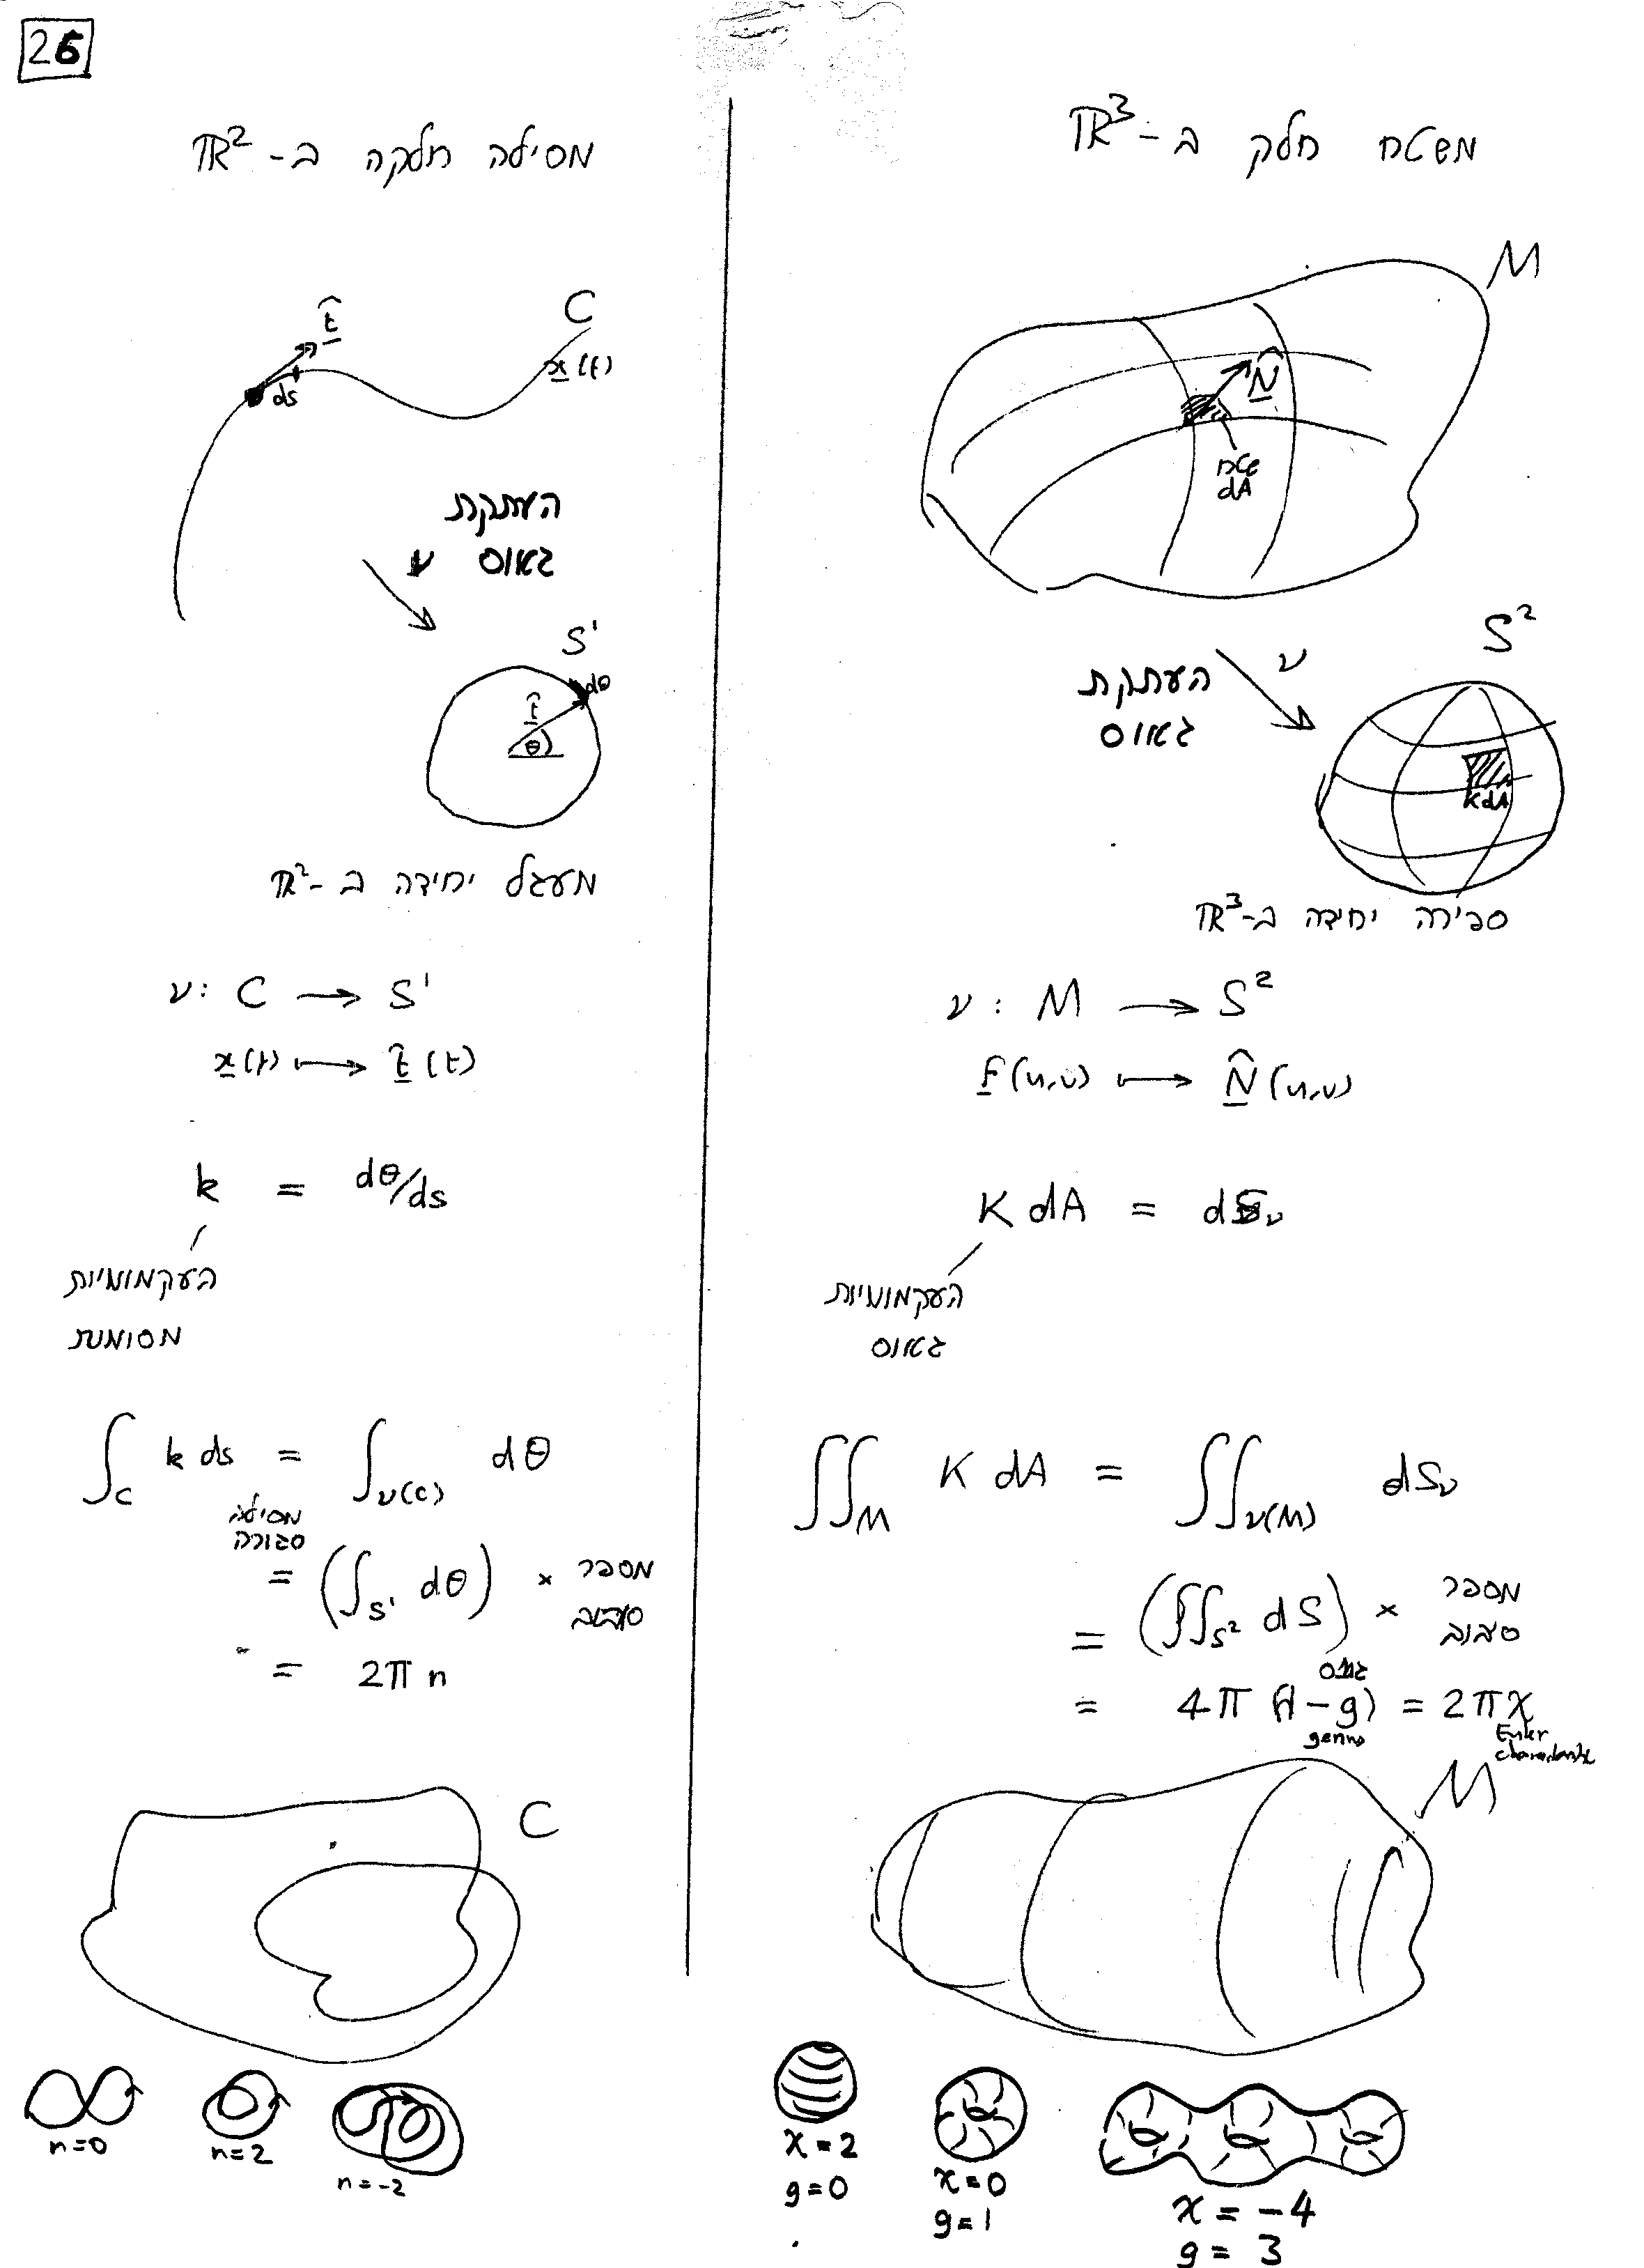 26
מסילה חלקה ב-ℝ²
C
t̂
x(t)
ds
העתקת
גאוס ν
S¹
dθ
t̂
θ
מעגל יחידה ב-ℝ²
ν: C → S¹
x(t) ↦ t̂(t)
k = dθ/ds
העקמומיות
מסומנת
∫_C k ds = ∫_ν(C) dθ
מסילה
סגורה
= (∫_S¹ dθ) × מספר
סבוב
= 2πn
C
n=0
n=2
n=-2
משטח חלק ב-ℝ³
M
N̂
שטח
dA
ν
S²
העתקת
גאוס
KdA
ספירה יחידה ב-ℝ³
ν: M → S²
F(u,v) ↦ N̂(u,v)
K dA = dS_ν
העקמומיות
גאוס
∬_M K dA = ∬_ν(M) dS_ν
= (∬_S² dS) × מספר
סבוב
= 4π(1-g) = 2πχ
genus
Euler
characteristic
M
χ=2
g=0
χ=0
g=1
χ=-4
g=3